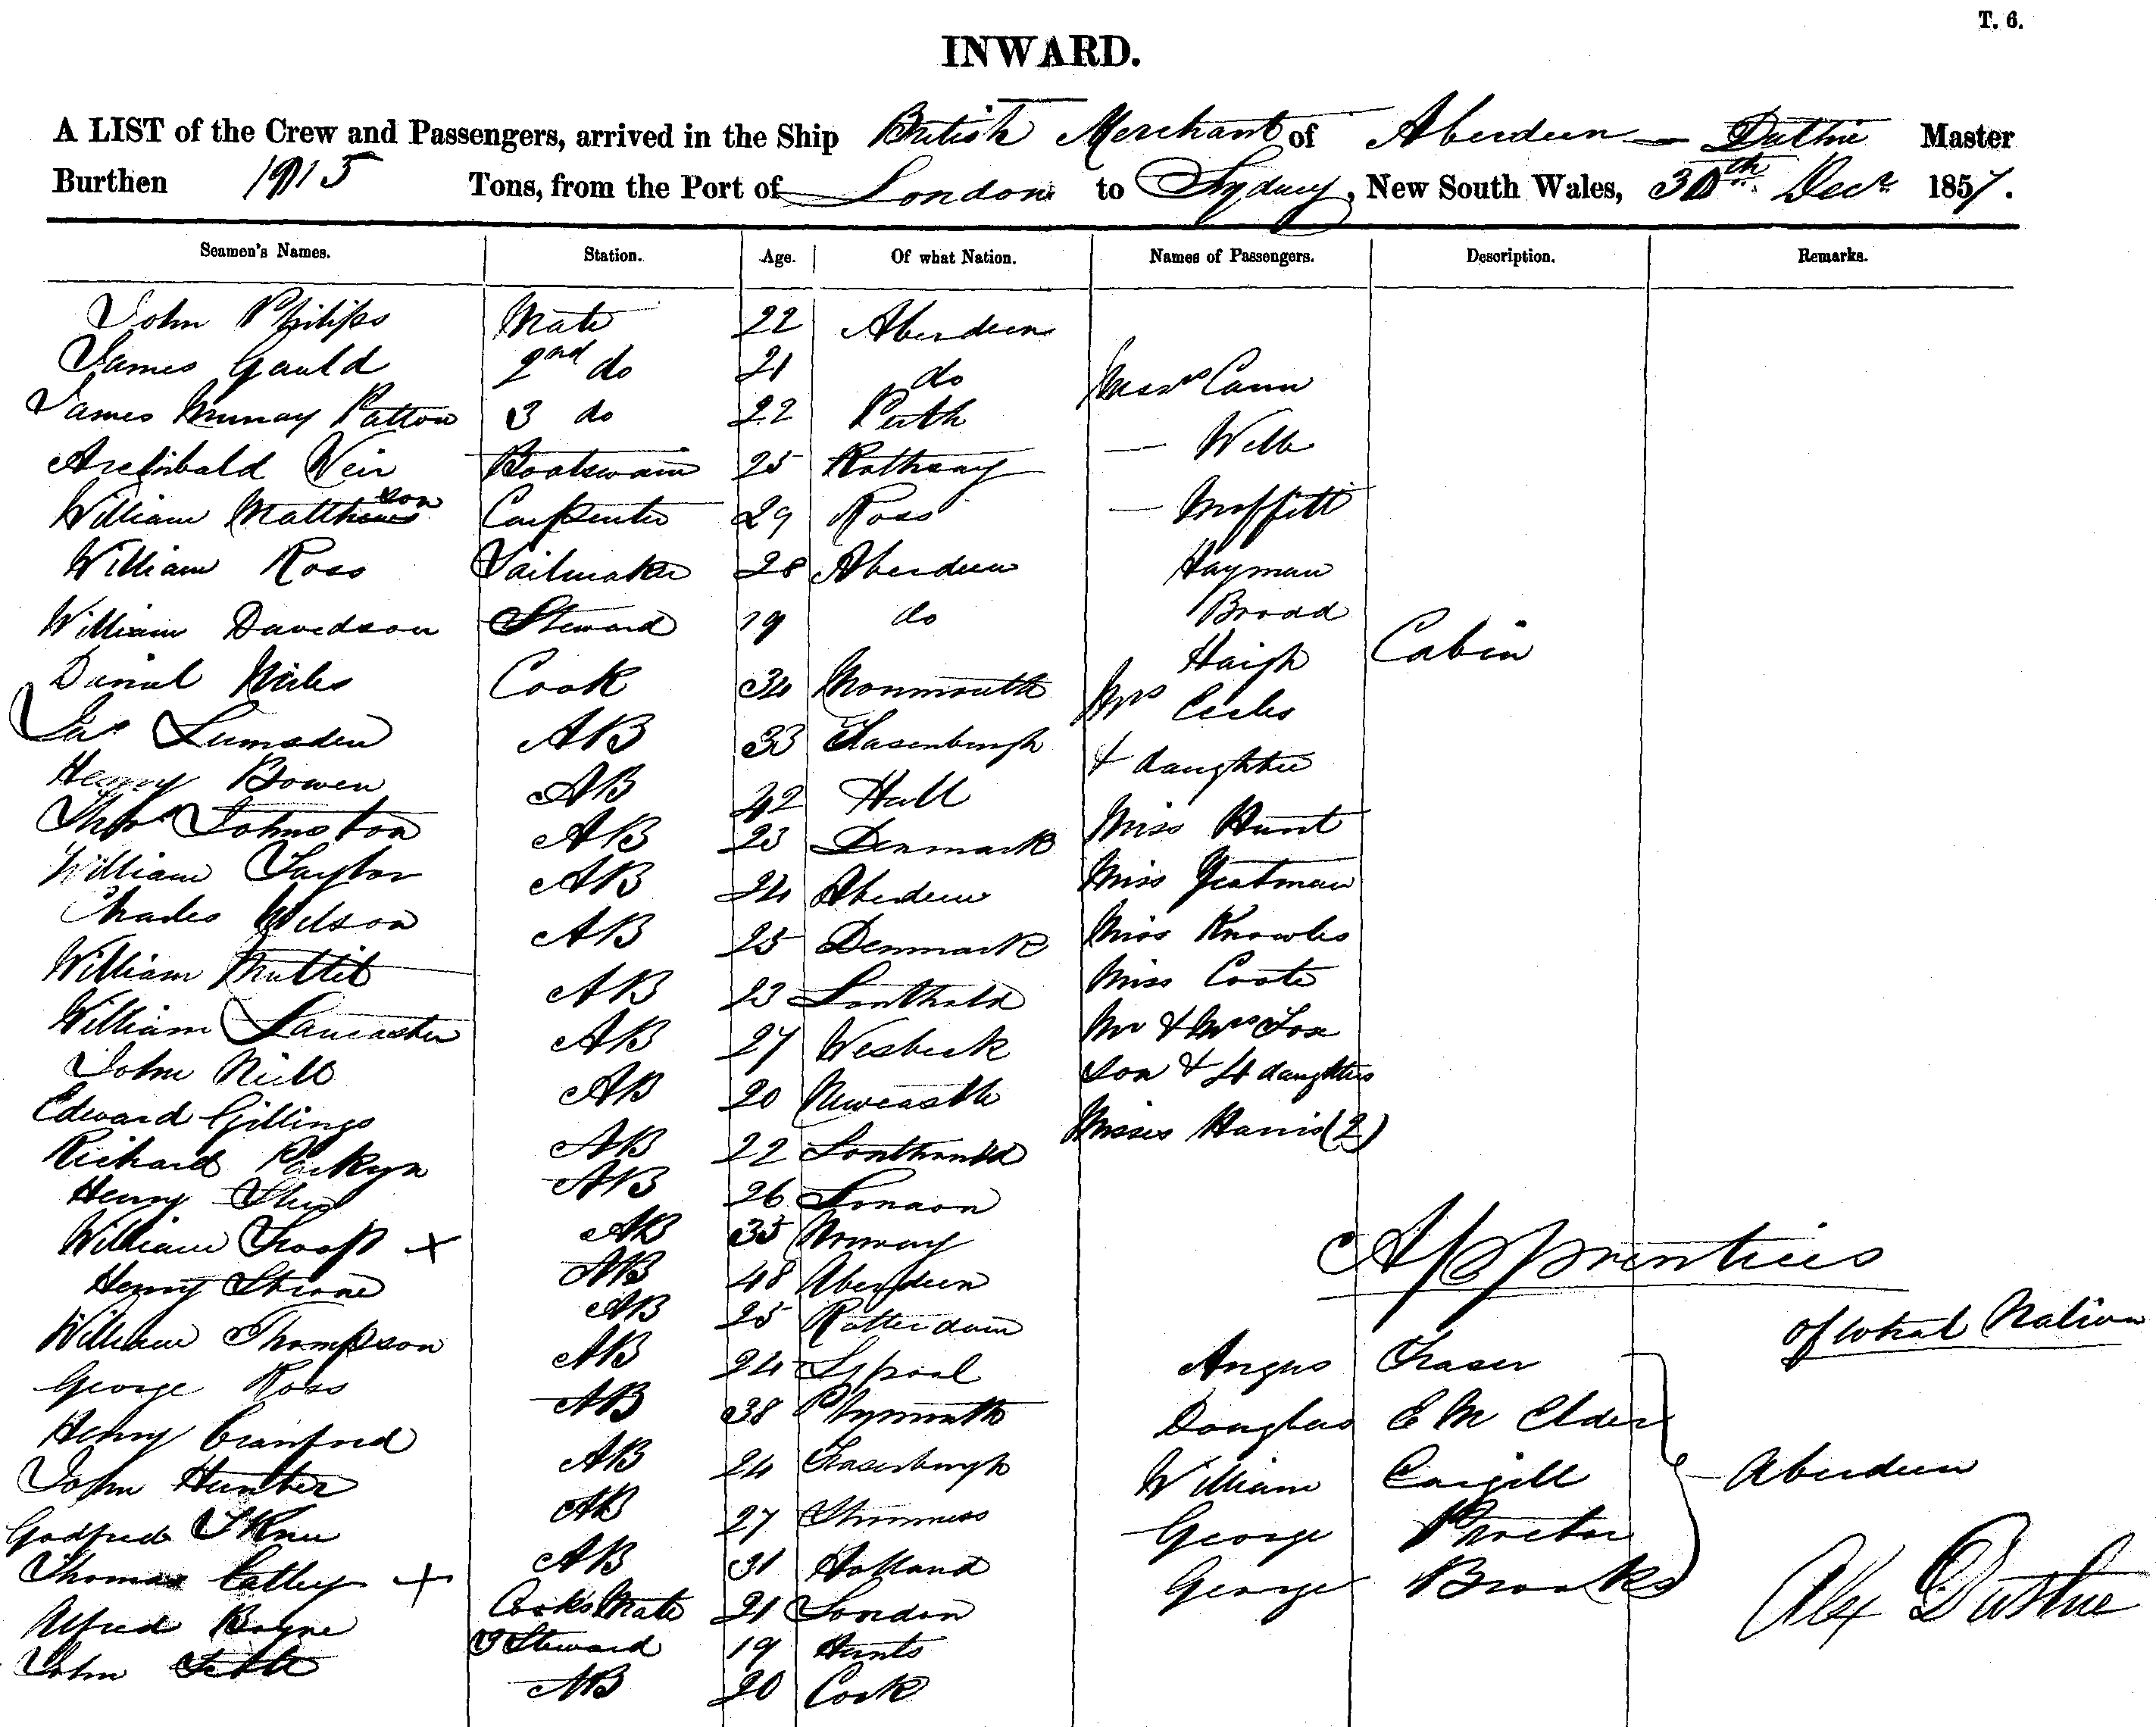 T. 6.
INWARD.
A LIST of the Crew and Passengers, arrived in the Ship British Merchant of Aberdeen — Duthie Master
Burthen Tons, from the Port of London to Sydney, New South Wales, 30th Decr 1857.
Seamen's Names. Station. Age. Of what Nation. Names of Passengers. Description. Remarks.
John Philips Mate 22 Aberdeen
James Gauld 2nd do 21 do Messrs Cann
James Murray Patton 3 do 22 Perth
Archibald Weir Boatswain 25 Rothsay — Webb
William Matthewson Carpenter 29 Ross — Moffitt
William Ross Sailmaker 28 Aberdeen Hayman
William Davidson Steward 19 do Broad
Daniel Miles Cook 34 Monmouth Haigh Cabin
Jas Lumsden AB 33 Frasenburgh Mrs Eccles
& daughter
Henry Bowen AB 42 Hull
Thos Johnston AB 23 Denmark Miss Hunt
William Taylor AB 24 Aberdeen Miss Yeatman
Charles Wilson AB 25 Denmark Miss Knowles
William Muttit AB 23 Miss Coote
William Lancaster AB 27 Wesbeck Mr & Mrs Fox
John Neill AB 20 Newcastle son & 4 daughters
Edward Gillings AB 22 Misses Harris (2)
Richard Parkyn AB 26 London
Henry AB 35 Norway
William Troop × AB 48 Aberdeen
Henry Strone AB 25 Rotterdam
William Thompson AB 24 Lpool
George Ross AB 38 Plymouth
Henry Cranford AB 24 Fraserburgh
John Hunter AB 27 Stromness
Godfred AB 31 Holland
Thomas Catley × Cooks Mate 21 London
Alfred Bayne 2 Steward 19 Hants
John Scott AB 20 Cork
Apprentices
Of what Nation
Angus Fraser
Douglas E M Elder
William Cargill Aberdeen
George Proctor
George Brooks
Alex Duthie